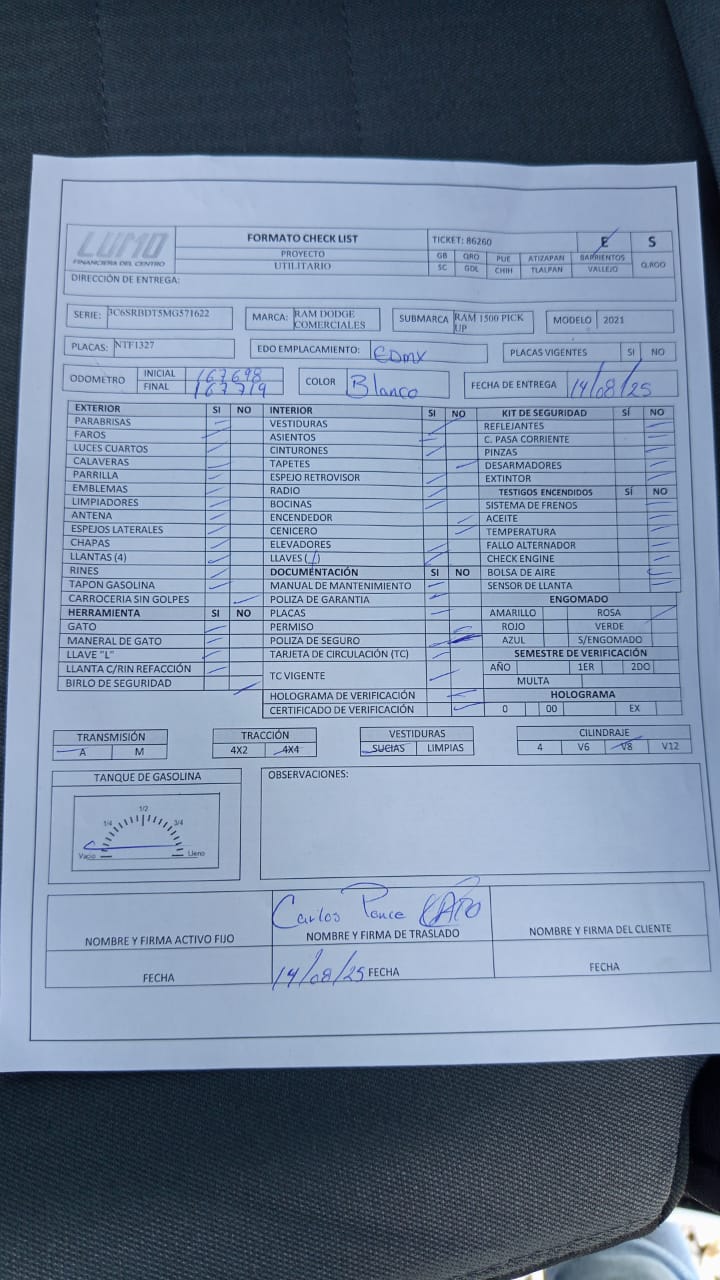 LUMO
FINANCIERA DEL CENTRO
FORMATO CHECK LIST
PROYECTO
UTILITARIO
TICKET: 86260 E S
GB QRO PUE ATIZAPAN BARRIENTOS
SC GDL CHIH TLALPAN VALLEJO Q.ROO
DIRECCIÓN DE ENTREGA:
SERIE: 3C6SRBDT5MG571622 MARCA: RAM DODGE COMERCIALES SUBMARCA RAM 1500 PICK UP MODELO 2021
PLACAS: NTF1327 EDO EMPLACAMIENTO: CDMX PLACAS VIGENTES SI NO
ODOMETRO INICIAL 167698 COLOR Blanco FECHA DE ENTREGA 14/08/25
FINAL 167719
EXTERIOR SI NO
PARABRISAS
FAROS
LUCES CUARTOS
CALAVERAS
PARRILLA
EMBLEMAS
LIMPIADORES
ANTENA
ESPEJOS LATERALES
CHAPAS
LLANTAS (4)
RINES
TAPON GASOLINA
CARROCERIA SIN GOLPES
HERRAMIENTA SI NO
GATO
MANERAL DE GATO
LLAVE "L"
LLANTA C/RIN REFACCIÓN
BIRLO DE SEGURIDAD
INTERIOR SI NO
VESTIDURAS
ASIENTOS
CINTURONES
TAPETES
ESPEJO RETROVISOR
RADIO
BOCINAS
ENCENDEDOR
CENICERO
ELEVADORES
LLAVES (1)
DOCUMENTACIÓN SI NO
MANUAL DE MANTENIMIENTO
POLIZA DE GARANTIA
PLACAS
PERMISO
POLIZA DE SEGURO
TARJETA DE CIRCULACIÓN (TC)
TC VIGENTE
HOLOGRAMA DE VERIFICACIÓN
CERTIFICADO DE VERIFICACIÓN
KIT DE SEGURIDAD SÍ NO
REFLEJANTES
C. PASA CORRIENTE
PINZAS
DESARMADORES
EXTINTOR
TESTIGOS ENCENDIDOS SÍ NO
SISTEMA DE FRENOS
ACEITE
TEMPERATURA
FALLO ALTERNADOR
CHECK ENGINE
BOLSA DE AIRE
SENSOR DE LLANTA
ENGOMADO
AMARILLO ROSA
ROJO VERDE
AZUL S/ENGOMADO
SEMESTRE DE VERIFICACIÓN
AÑO 1ER 2DO
MULTA
HOLOGRAMA
0 00 EX
TRANSMISIÓN
A M
TRACCIÓN
4X2 4X4
VESTIDURAS
SUCIAS LIMPIAS
CILINDRAJE
4 V6 V8 V12
TANQUE DE GASOLINA
1/2
1/4 3/4
Vacio Lleno
OBSERVACIONES:
NOMBRE Y FIRMA ACTIVO FIJO
FECHA
Carlos Ponce
NOMBRE Y FIRMA DE TRASLADO
14/08/25 FECHA
NOMBRE Y FIRMA DEL CLIENTE
FECHA